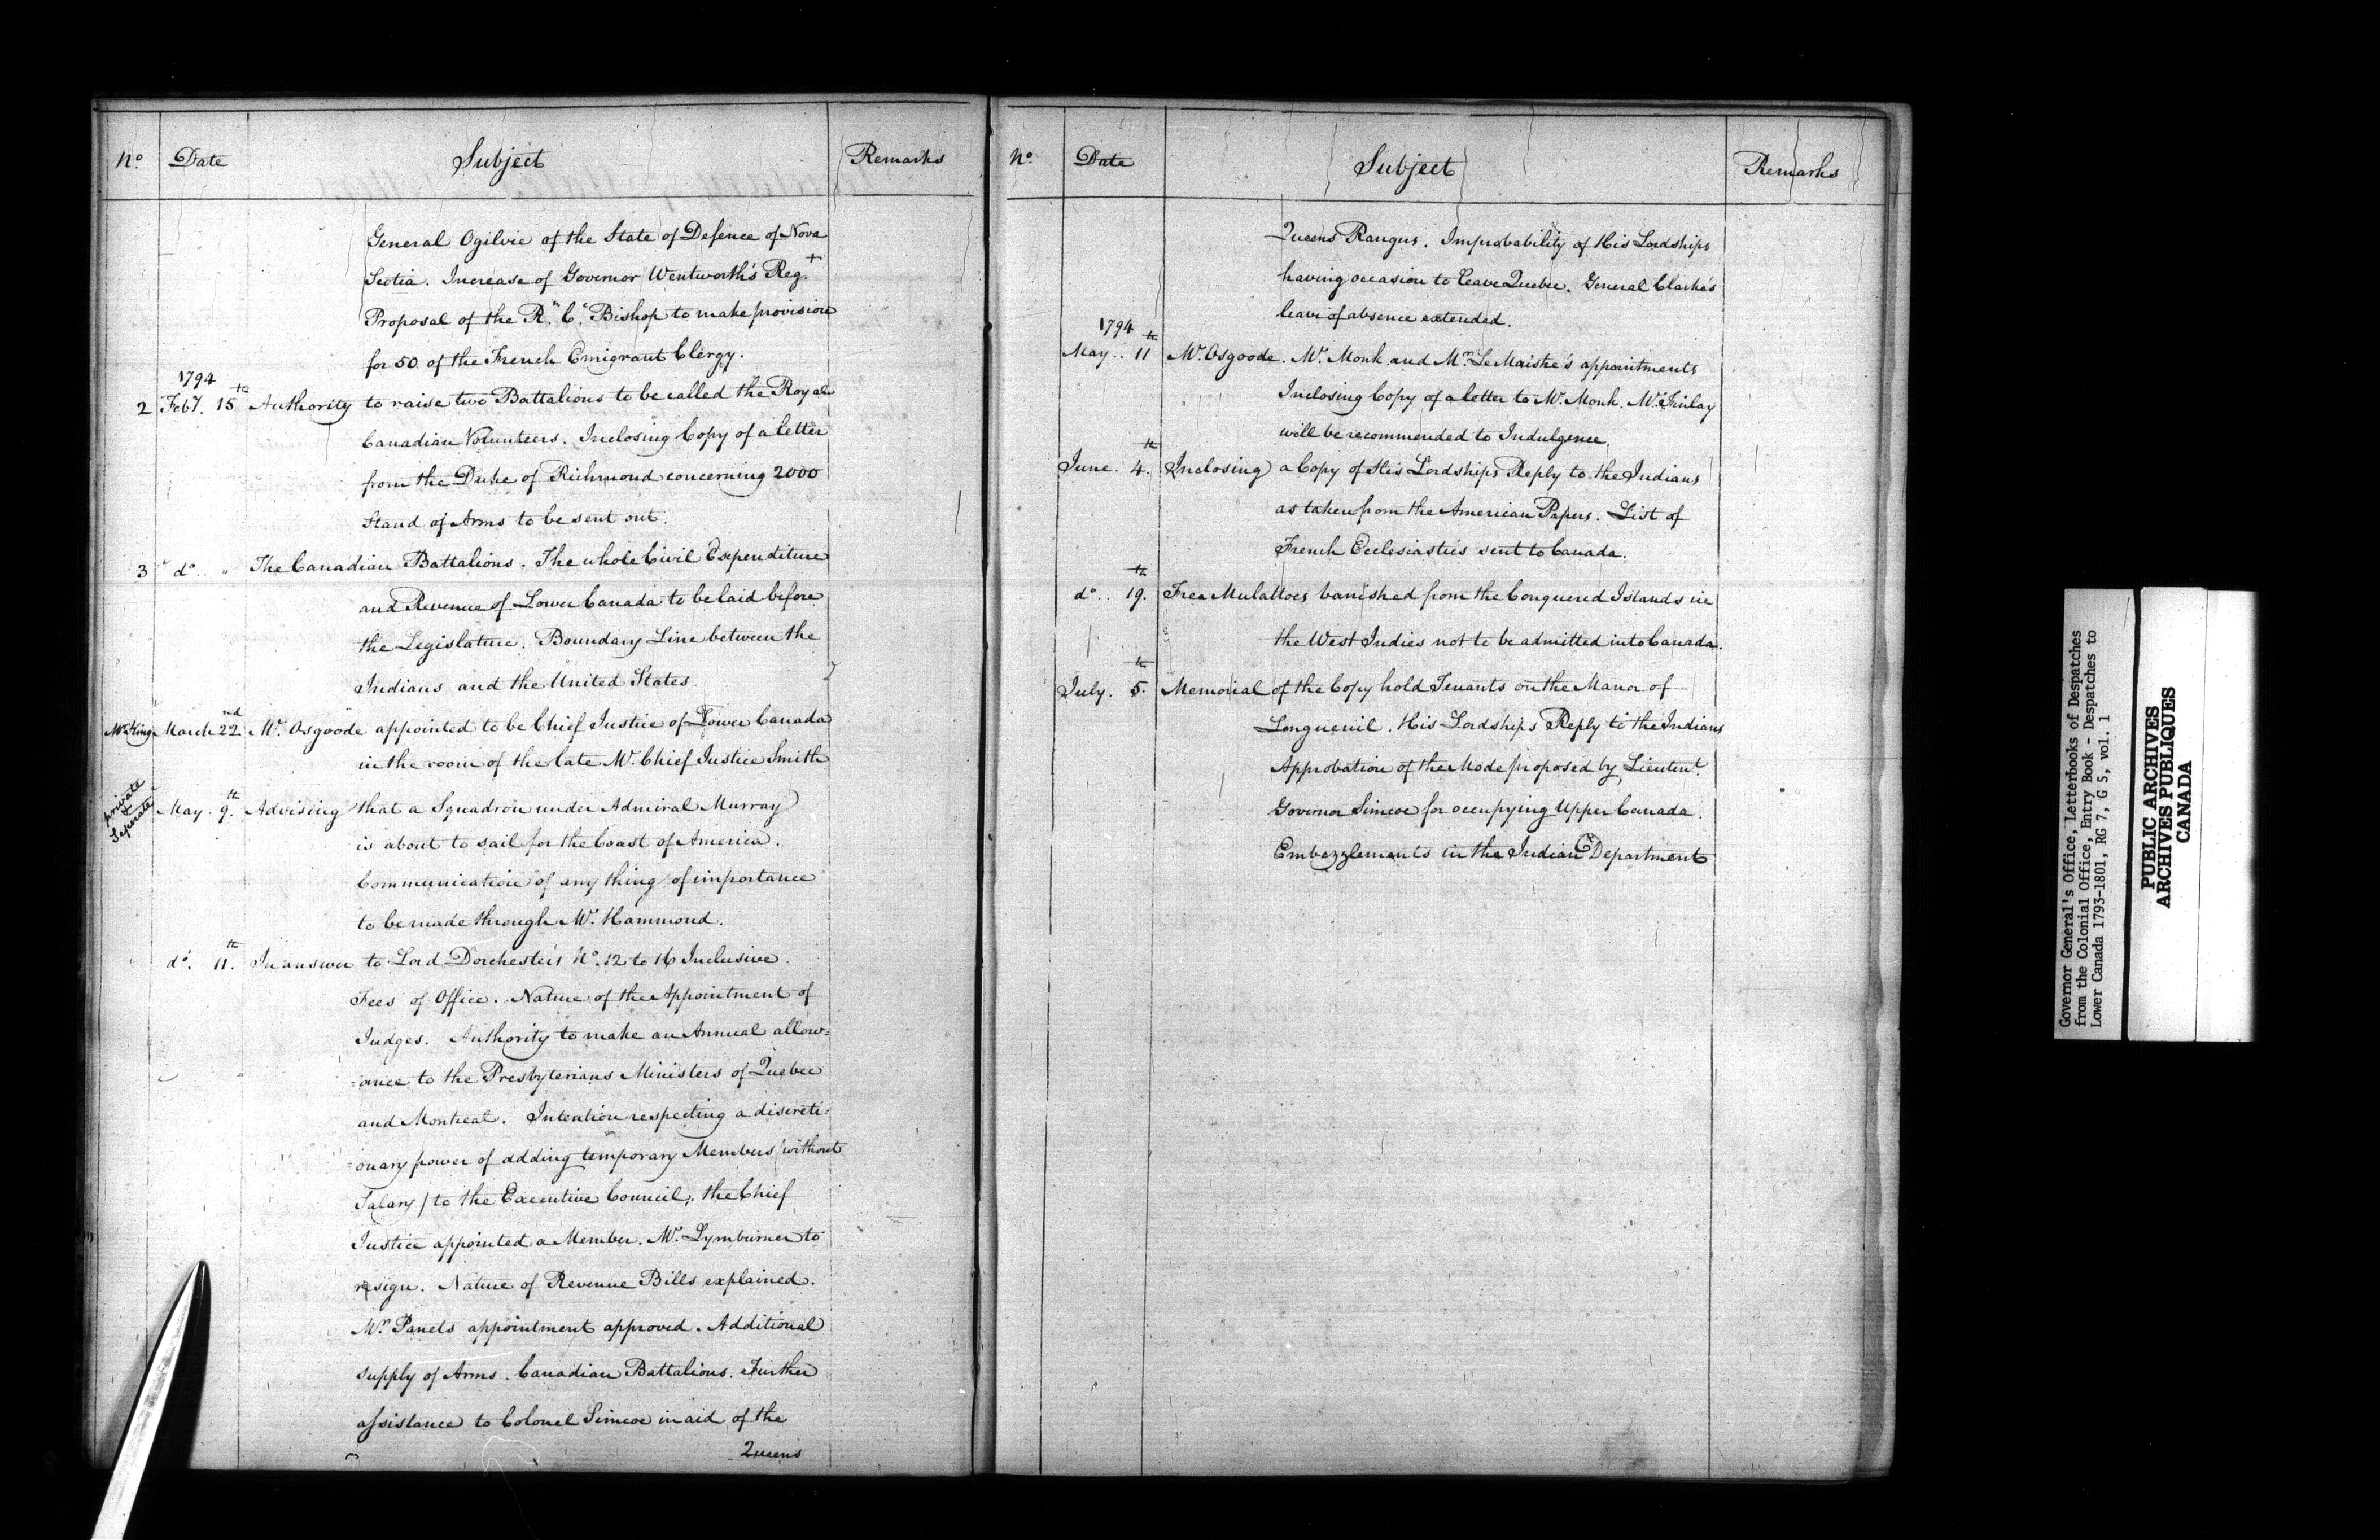 No. Date Subject Remarks
General Ogilvie of the State of Defence of Nova
Scotia. Increase of Governor Wentworth's Regt.
Proposal of the Rn. C. Bishop to make provision
for 50 of the French Emigrant Clergy.
1794
2 Feby. 15th Authority to raise two Battalions to be called the Royal
Canadian Volunteers. Inclosing Copy of a letter
from the Duke of Richmond concerning 2000
Stand of Arms to be sent out.
3 " do. " The Canadian Battalions. The whole Civil Expenditure
and Revenue of Lower Canada to be laid before
the Legislature. Boundary Line between the
Indians and the United States.
Mr. King March 22nd Mr. Osgoode appointed to be Chief Justice of Lower Canada
in the room of the late Mr. Chief Justice Smith
private & Seperate May. 9th. Advising that a Squadron under Admiral Murray
is about to sail for the Coast of America.
Communication of any thing of importance
to be made through Mr. Hammond.
do. 11th. In answer to Lord Dorchester's No. 12 to 16 Inclusive.
Fees of Office. Nature of the Appointment of
Judges. Authority to make an Annual allow=
=ance to the Presbyterians Ministers of Quebec
and Montreal. Intention respecting a discreti=
=onary power of adding temporary Members /without
Salary/ to the Executive Council; the Chief
Justice appointed a Member. Mr. Lymburner to
resign. Nature of Revenue Bills explained.
Mr. Panets appointment approved. Additional
supply of Arms. Canadian Battalions. Further
assistance to Colonel Simcoe in aid of the
Queens
No. Date Subject Remarks
Queens Rangers. Improbability of His Lordships
having occasion to leave Quebec. General Clarke's
leave of absence extended.
1794
May.. 11th Mr. Osgoode. Mr. Monk and Mr. Le Maistre's appointments
Inclosing Copy of a letter to Mr. Monk. Mr. Finlay
will be recommended to Indulgence.
June. 4th. Inclosing a Copy of His Lordships Reply to the Indians
as taken from the American Papers. List of
French Ecclesiastics sent to Canada.
do.. 19th. Free Mulattoes banished from the Conquered Islands in
the West Indies not to be admitted into Canada.
July. 5th. Memorial of the Copy hold Tenants on the Manor of
Longueuil. His Lordships Reply to the Indians
Approbation of the Mode proposed by Lieutent.
Governor Simcoe for occupying Upper Canada.
Embezzlements in the Indian Department
Governor General's Office, Letterbooks of Despatches
from the Colonial Office, Entry Book - Despatches to
Lower Canada 1793-1801, RG 7, G 5, vol. 1
PUBLIC ARCHIVES
ARCHIVES PUBLIQUES
CANADA